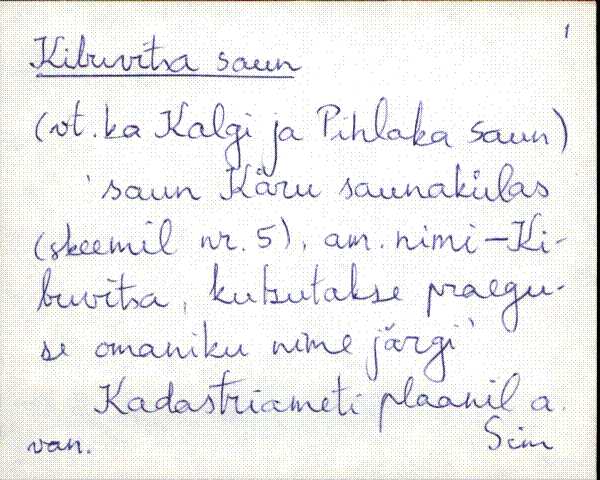 1
Kibuvitsa saun
(vt. ka Kalgi ja Pihlaka saun)
'saun Käru saunakülas
(skeemil nr. 5), am. nimi – Ki-
buvitsa, kutsutakse praegu-
se omaniku nime järgi'
Kadastriameti plaanil a.
van. Sim